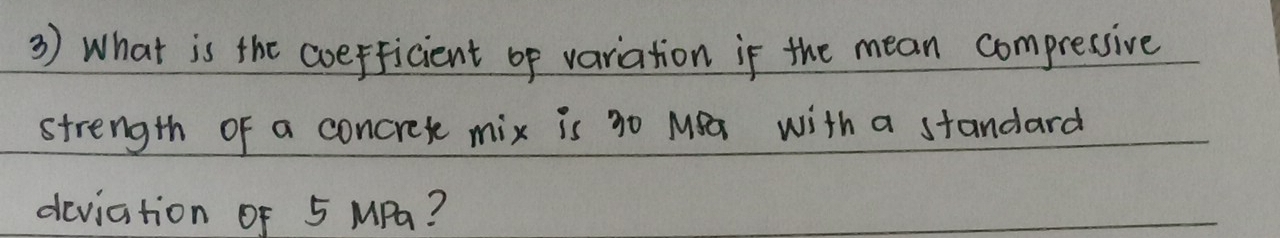 3) What is the coefficient of variation if the mean compressive
strength of a concrete mix is 30 MPa with a standard
deviation of 5 MPa?